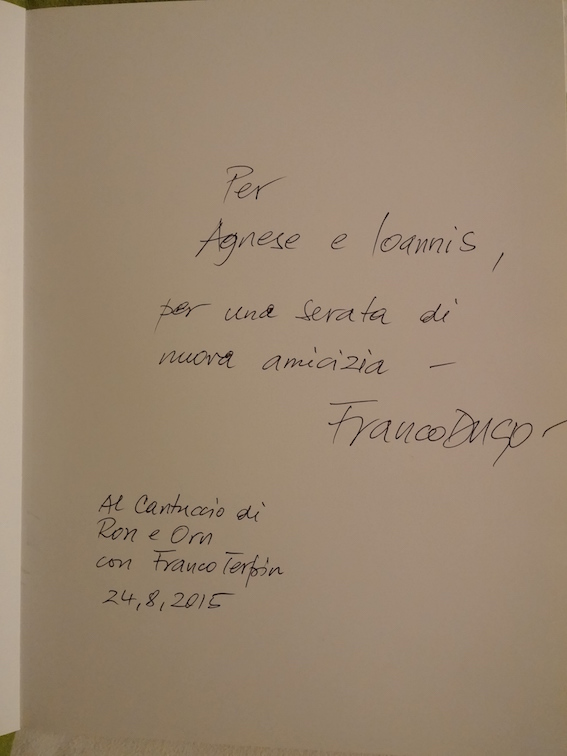 Per
Agnese e Ioannis,
per una serata di
nuova amicizia –
Franco Dugo –
Al Cantuccio di
Ron e Orn
con Franco Terpin
24,8,2015